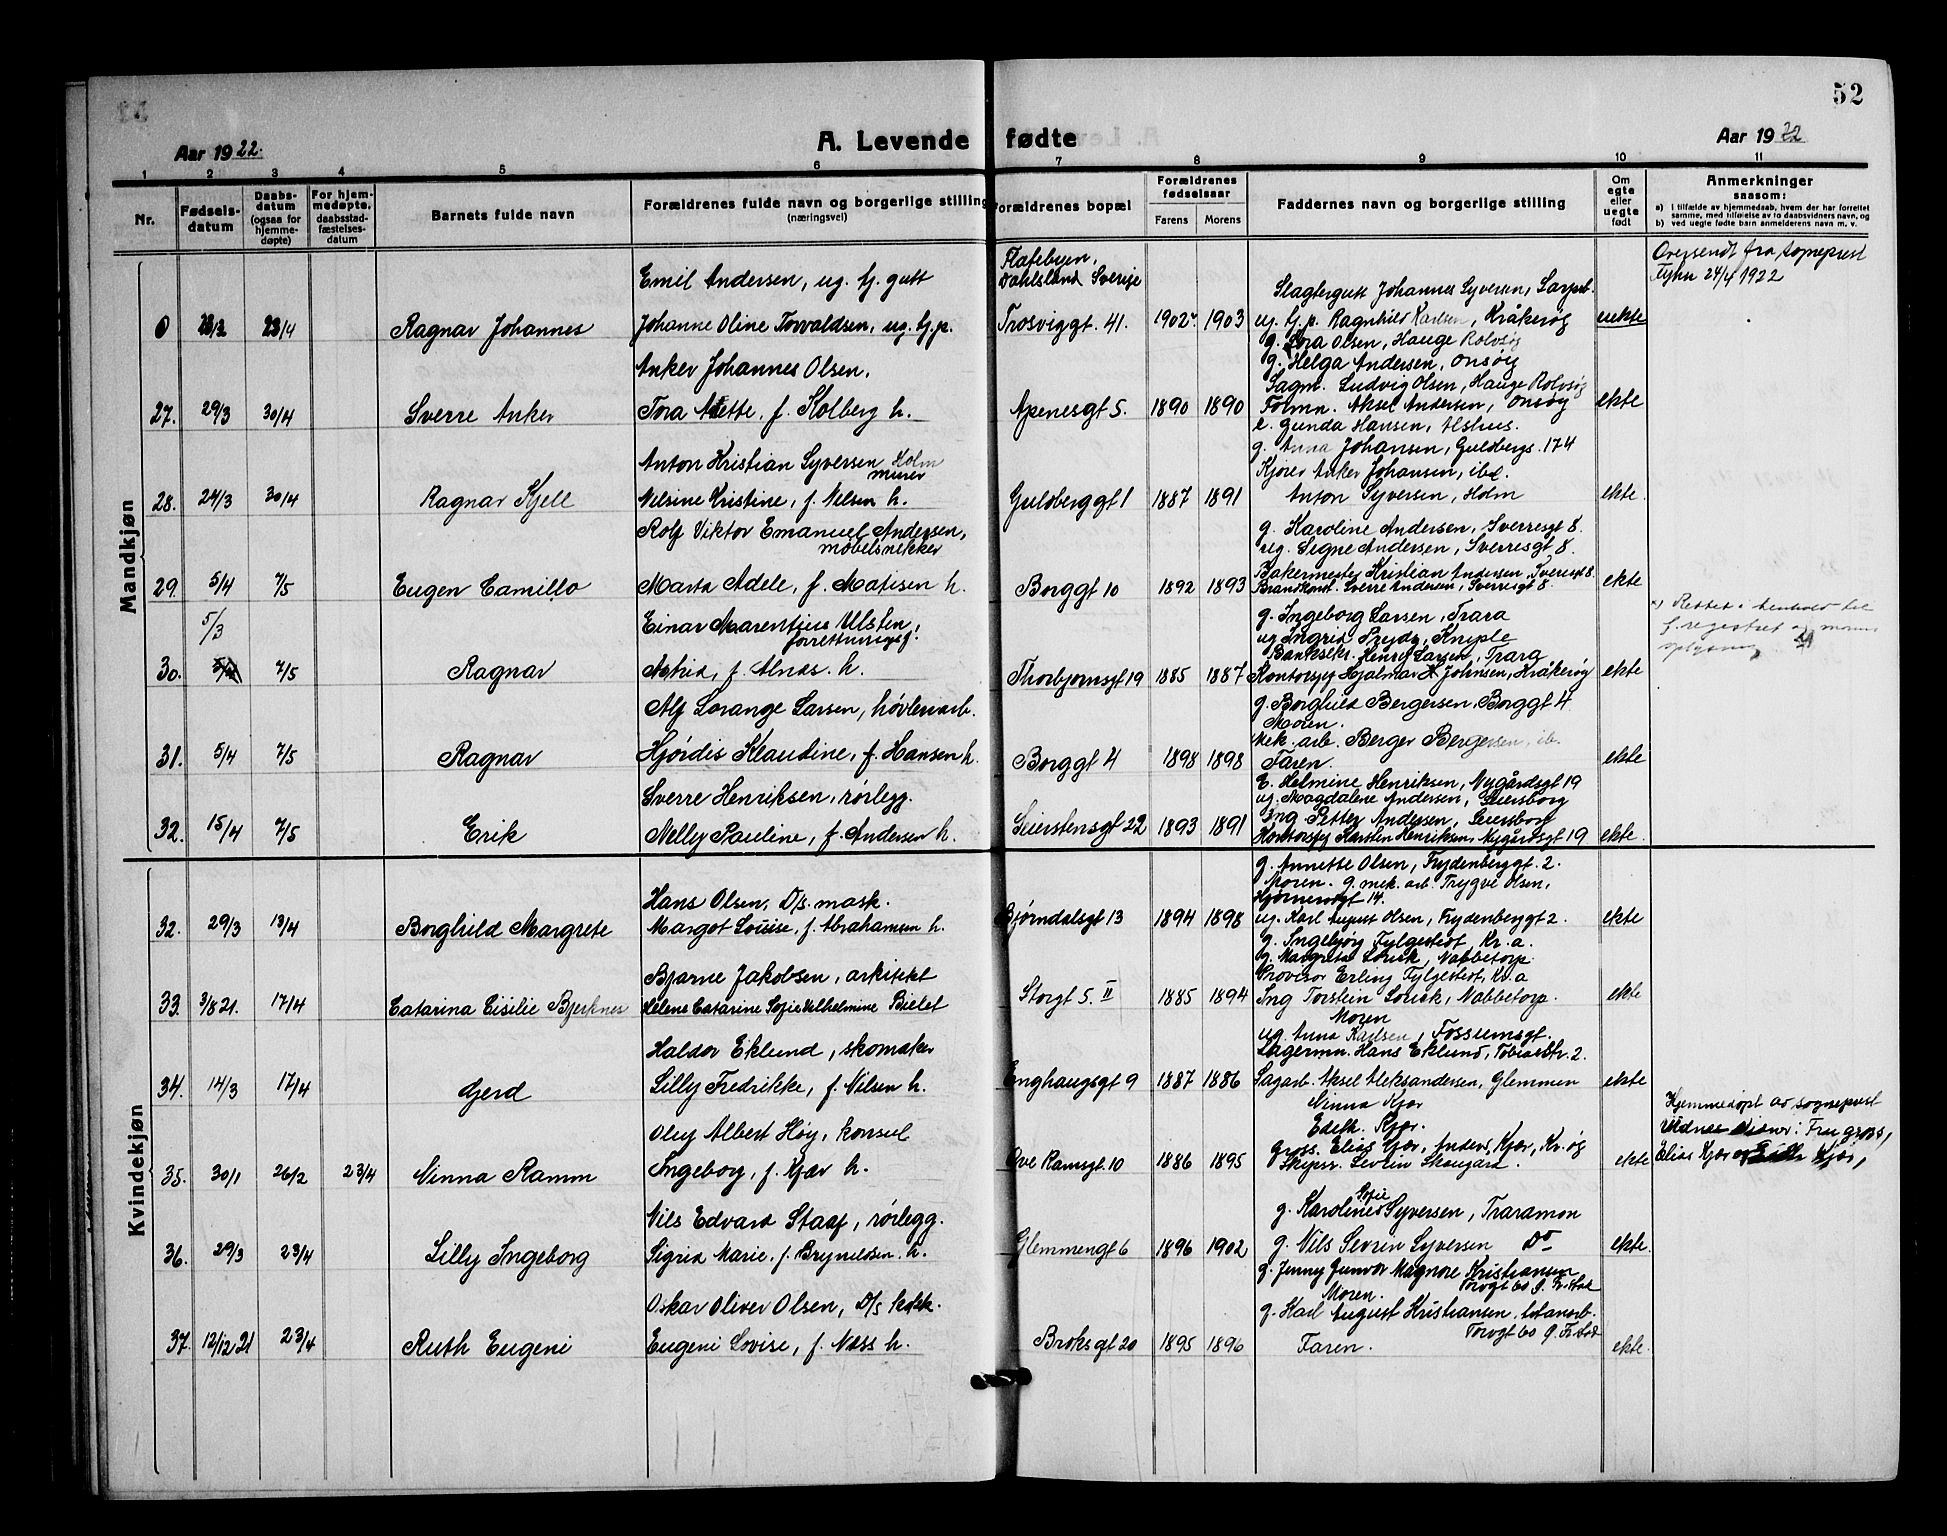 52
A. Levende fødte
Aar 1922.
Aar 1922
1 2 3 4 5 6 7 8 9 10 11
Nr.
Fødselsdatum
Daabsdatum (ogsaa for hjemmedøpte)
For hjemmedøpte, daabsstadfæstelsesdatum
Barnets fulde navn
Forældrenes fulde navn og borgerlige stilling (næringsvei)
Forældrenes bopæl
Forældrenes fødselsaar
Farens Morens
Faddernes navn og borgerlige stilling
Om egte eller uegte født
Anmerkninger saasom:
a) i tilfælde av hjemmedaab, hvem der har forrettet samme, med tilføielse av to daabsvidners navn, og
b) ved uegte fødte barn anmelderens navn m. v.
Mandkjøn
Emil Andersen, ug. bj. gutt
Flatebyen, Dahlsland Sverige
Oversendt fra sogneprest
24/4 1922
Slagtergutt Johannes Syversen, Sarpsb.
23/4 Ragnar Johannes Johanne Oline Torvaldsen, ug. bj. p. Trosviggt. 41. 1902 1903 ug. bj. p. Ragnhild Karlsen, Kråkerøy uekte
g. Tora Olsen, Hauge Rolvsøy
g. Helga Andersen, Onsøy
Anker Johannes Olsen.
Sagm. Ludvig Olsen, Hauge Rolvsøy
27. 29/3 30/4 Sverre Anker Tora Anette, f. Kolberg h. Apenesgt 5. 1890 1890 Formn. Aksel Andersen, Onsøy ekte
e. Gunda Hansen, Ilshus.
g. Anna Johansen, Guldbergs. 174
Anton Kristian Syversen Holm murer
Kjører Anker Johansen, ibd.
28. 24/3 30/4 Ragnar Kjell Nelsine Kristine, f. Nelsen h. Guldberggt 1 1887 1891 Anton Syversen, Holm ekte.
Rolf Viktor Emanuel Andersen, møbelsnekker
g. Karoline Andersen, Sverresgt 8.
ug. Signe Andersen, Sverresgt 8.
Bakermester Kristian Andersen, Sverresgt 8.
29. 5/4 7/5 Eugen Camillo Marta Adele, f. Matisen h. Borggt 10 1892 1893 Brandkonst. Sverre Andersen, Sverresgt 8. ekte
5/3
Einar Marentius Ulsten, forretningsf.
g. Ingeborg Larsen, Trara
ug Ingrid Prydz, Kniple
Banksekr. Henry Larsen, Trara
Rettet i henhold til f. registret og morens oplysning
30. 5/4 7/5 Ragnar Astrid, f. Alnæs. h. Thorbjørnsgt 19 1885 1887 Kontorsjef Hjalmar Johnsen, Kråkerøy ekte
Alf Lorange Larsen, høvleriarb.
g. Borghild Bergersen. Borggt 4
Moren.
Mek. arb. Berger Bergersen, ib.
31. 5/4 7/5 Ragnar Hjørdis Klaudine, f. Hansen h. Borggt 4 1898 1898 Faren. ekte
Sverre Henriksen, rørlegg.
E. Helmine Henriksen, Nygårdsgt 19
ug. Magdalene Andersen, Leiersborg
Ing Petter Andersen, Leiersborg
32. 15/4 7/5 Erik Nelly Pauline, f. Andersen h. Seierstensgt 22 1893 1891 Kontorsjef Karsten Henriksen, Nygårdsgt 19 ekte.
Kvindekjøn
Hans Olsen, D/s mask.
g. Annette Olsen, Frydenberggt. 2.
Moren. g. mek. arb. Trygve Olsen,
Hjørnerødgt 14.
32. 29/3 13/4 Borghild Margrete Margot Louise, f. Abrahamsen h. Bjørndalsgt 13 1894 1898 ug. Karl August Olsen, Frydenberggt 2. ekte
Bjarne Jakobsen, arkitekt
g. Ingebjørg Fylgestedt, Kr. a.
g. Margrete Lorick, Nabbetorp
Provisor Erling Fylgestedt, Kr. a
33. 3/8 21. 17/4 Catarina Cisilie Bjerknes Helene Catarine Sofie Vilhelmine Bielet Storgt 5. II 1885 1894 Ing Torstein Lorick, Nabbetorp. ekte
Haldor Eklund, skomaker
Moren
ug. Anna Karlsen, Fossumsgt.
Lagermn. Hans Eklund, Tobiasstr. 2.
34. 14/3 17/4 Gerd Lilly Fredrikke, f. Nilsen h. Enghaugsgt 9 1887 1886 Sagarb. Aksel Aleksandersen, Glemmen ekte
Oluf Albert Høy, konsul
Ninna Kjær
Edith. Kjær.
Gross. Elias Kjær, Anders Kjær, Kr. øy
Hjemmedøpt av sogneprest
Vidner: Fru gross,
Elias Kjær og Edith Kjær,
35. 30/1 26/2 23/4 Ninna Ramm Ingeborg, f. Kjær h. Ove Ramsgt. 10 1886 1895 Skipsr. Severin Skougard. ekte
Nils Edvard Staaf, rørlegg.
g. Karoline Sofie Syversen, Traramon
36. 29/3 23/4 Lilly Ingeborg Sigrid Marie. f. Brynildsen. h. Glemmengt 6 1896 1902 g. Nils Severin Syversen Do ekte.
g. Jenny Gunvor Magnore Kristiansen
Torvgt 60 Ø. Fr.stad
Oskar Oliver Olsen, D/s kokk.
Moren.
g. Karl August Kristiansen, totanarb.
Torvgt 60 Ø. Fr.stad
37. 12/12 21 23/4 Ruth Eugeni Eugeni Lovise, f. Næss h. Broksgt 20 1895 1896 Faren. ekte.